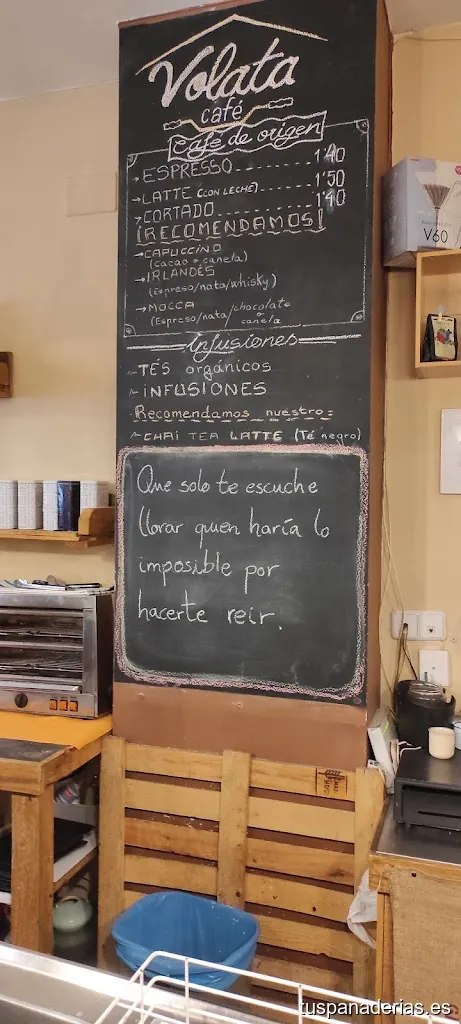 Volata
café
café de origen
ESPRESSO---------- 1'40
LATTE (CON LECHE)------- 1'50
CORTADO---------- 1'40
¡RECOMENDAMOS!
CAPUCCINO
(cacao o canela)
IRLANDÉS
(Espreso/nata/whisky)
MOCCA
(Espreso/nata/chocolate o canela)
infusiones
TÉS orgánicos
INFUSIONES
Recomendamos nuestro:
CHAI TEA LATTE (Té negro)
Que solo te escuche
llorar quien haría lo
imposible por
hacerte reir.
V60
tuspanaderias.es